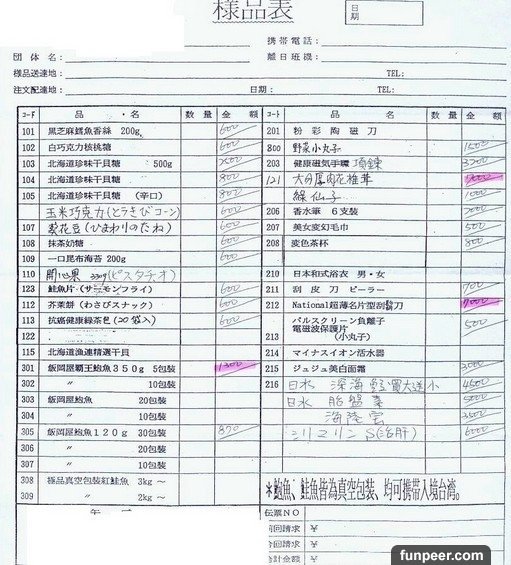 様品表
日期
携帯電話:
団体名: 離日班機:
様品送達地: TEL:
注文配達地: 日期: TEL:
コード 品・名 数量 金額
101 黒芝麻鱈魚香絲 200g 600
102 白巧克力核桃糖 600
103 北海道珍味干貝糖 500g 2500
104 北海道珍味干貝糖 600
105 北海道珍味干貝糖 (辛口) 600
玉米巧克力(とうきびコーン) 600
107 葵花豆(ひまわりのたね) 600
108 抹茶奶糖 600
109 一口昆布海苔 200g 600
110 開心果 (ピスタチオ) 600
123 鮭魚片(サーモンフライ) 600
112 芥菜餅(わさびスナック) 600
113 抗癌健康綠茶包(20袋入) 600
122
115 北海道漁連精選干貝
301 飯岡屋覇王鮑魚350g 5包裝 1300
302 〃 10包裝
303 飯岡屋鮑魚 20包裝
304 〃 10包裝
305 飯岡屋鮑魚120g 30包裝 870
306 〃 20包裝
307 〃 10包裝
308 極品真空包裝紅鮭魚 3kg ～
309 〃 2kg ～
コード 品名 数量 金額
201 粉彩陶磁刀
800 野菜小丸子 1500
203 健康磁気手環 項鍊 3200
121 大分厚肉花椎茸
綠仙子 1000
206 香水筆 6支裝 2000
207 美女変幻毛巾 500
208 変色茶杯 800
210 日本和式浴衣 男・女
211 刮皮刀 ピーラー 700
212 National超薄名片型刮鬍刀
パルスクリーン負離子
電磁波保護片 500
213 (小丸子)
214 マイナスイオン活水器
215 ジュジュ美白面霜 3000
216 日水 深海 買大送小 4500
日水 胎盤素 5000
海陸雲 3500
シリマリン 6000
*鮑魚、鮭魚皆為真空包装、均可携帯入境台湾。
伝票NO
前回請求 ￥
今回請求 ￥
合計金額 ￥
funpeer.com